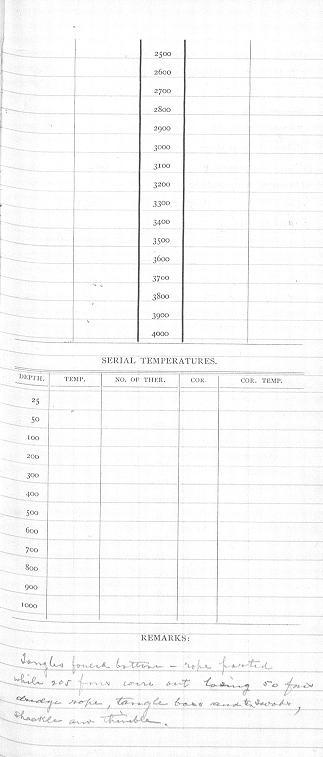 2500
2600
2700
2800
2900
3000
3100
3200
3300
3400
3500
3600
3700
3800
3900
4000
SERIAL TEMPERATURES.
DEPTH. TEMP. NO. OF THER. COR. COR. TEMP.
25
50
100
200
300
400
500
600
700
800
900
1000
REMARKS:
Tangles bottom – rope parted
while 205 fms were out losing 50 fms
dredge rope, tangle bar and
shackle and thimble.